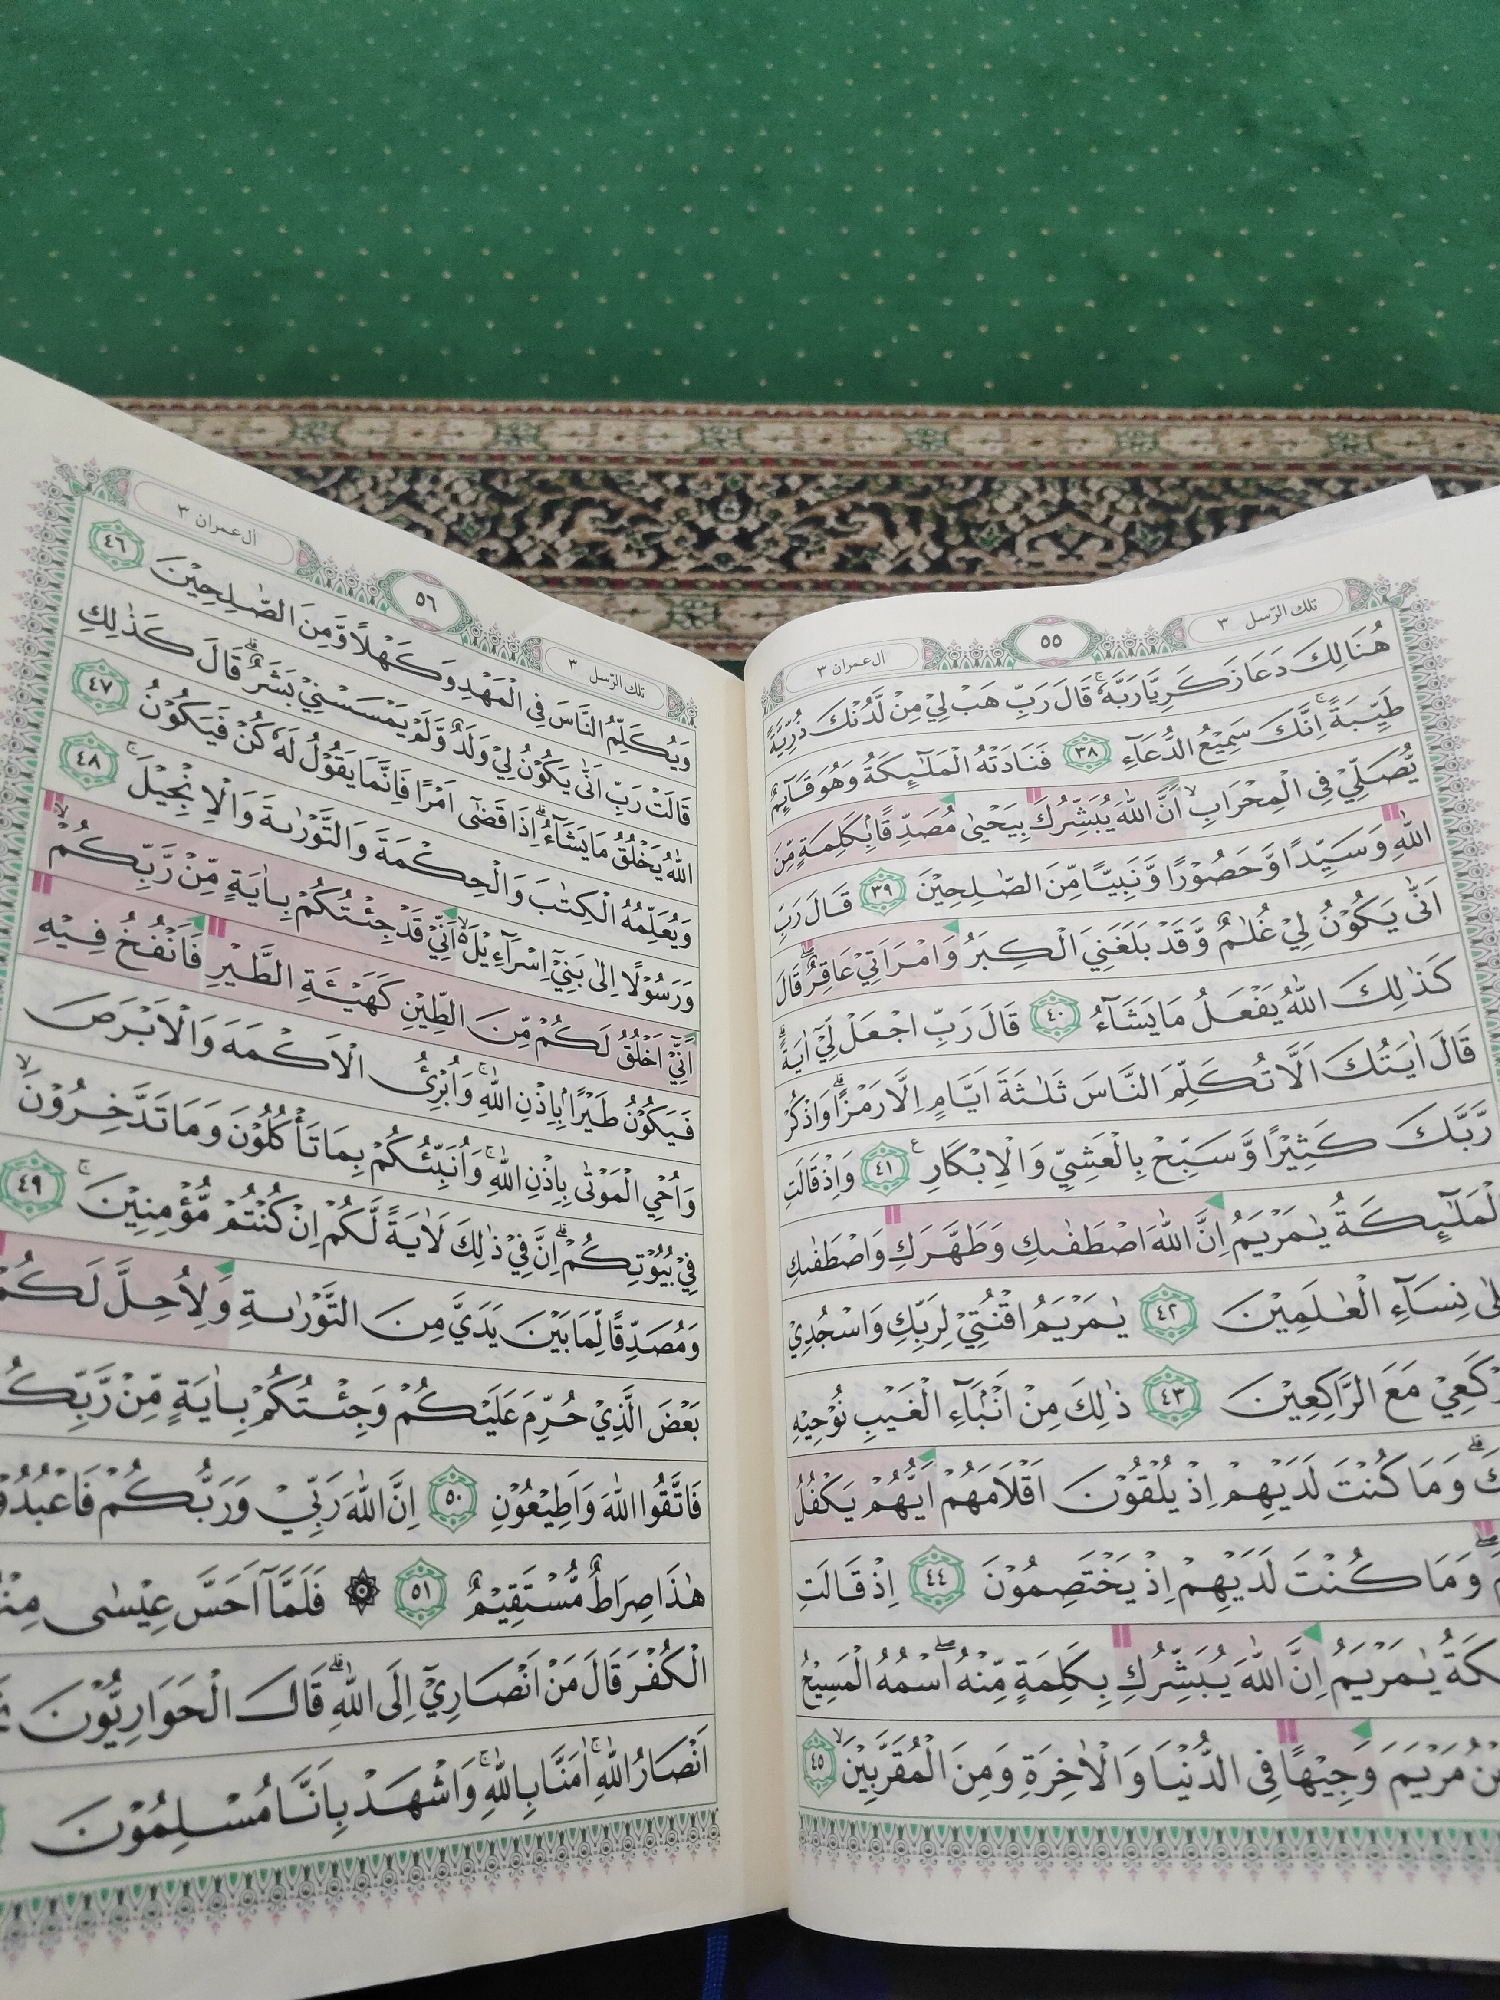 تلك الرّسل ٣
٥٥
اٰل عمران ٣
هُنَالِكَ دَعَا زَكَرِيَّا رَبَّهٗ ۚ قَالَ رَبِّ هَبْ لِيْ مِنْ لَّدُنْكَ ذُرِّيَّةً
طَيِّبَةً ۚ اِنَّكَ سَمِيْعُ الدُّعَاۤءِ ٣٨ فَنَادَتْهُ الْمَلٰۤىِٕكَةُ وَهُوَ قَاۤىِٕمٌ
يُّصَلِّيْ فِى الْمِحْرَابِۙ اَنَّ اللّٰهَ يُبَشِّرُكَ بِيَحْيٰى مُصَدِّقًاۢ بِكَلِمَةٍ مِّنَ
اللّٰهِ وَسَيِّدًا وَّحَصُوْرًا وَّنَبِيًّا مِّنَ الصّٰلِحِيْنَ ٣٩ قَالَ رَبِّ
اَنّٰى يَكُوْنُ لِيْ غُلٰمٌ وَّقَدْ بَلَغَنِيَ الْكِبَرُ وَامْرَاَتِيْ عَاقِرٌ ۗ قَالَ
كَذٰلِكَ اللّٰهُ يَفْعَلُ مَا يَشَاۤءُ ٤٠ قَالَ رَبِّ اجْعَلْ لِّيْٓ اٰيَةً ۗ
قَالَ اٰيَتُكَ اَلَّا تُكَلِّمَ النَّاسَ ثَلٰثَةَ اَيَّامٍ اِلَّا رَمْزًا ۗ وَاذْكُرْ
رَّبَّكَ كَثِيْرًا وَّسَبِّحْ بِالْعَشِيِّ وَالْاِبْكَارِ ࣖ ٤١ وَاِذْ قَالَتِ
الْمَلٰۤىِٕكَةُ يٰمَرْيَمُ اِنَّ اللّٰهَ اصْطَفٰىكِ وَطَهَّرَكِ وَاصْطَفٰىكِ
عَلٰى نِسَاۤءِ الْعٰلَمِيْنَ ٤٢ يٰمَرْيَمُ اقْنُتِيْ لِرَبِّكِ وَاسْجُدِيْ
وَارْكَعِيْ مَعَ الرَّاكِعِيْنَ ٤٣ ذٰلِكَ مِنْ اَنْۢبَاۤءِ الْغَيْبِ نُوْحِيْهِ
وَمَا كُنْتَ لَدَيْهِمْ اِذْ يُلْقُوْنَ اَقْلَامَهُمْ اَيُّهُمْ يَكْفُلُ
وَمَا كُنْتَ لَدَيْهِمْ اِذْ يَخْتَصِمُوْنَ ٤٤ اِذْ قَالَتِ
يٰمَرْيَمُ اِنَّ اللّٰهَ يُبَشِّرُكِ بِكَلِمَةٍ مِّنْهُ ۖ اسْمُهُ الْمَسِيْحُ
مَرْيَمَ وَجِيْهًا فِى الدُّنْيَا وَالْاٰخِرَةِ وَمِنَ الْمُقَرَّبِيْنَۙ ٤٥
تلك الرّسل ٣
٥٦
اٰل عمران ٣
وَيُكَلِّمُ النَّاسَ فِى الْمَهْدِ وَكَهْلًا وَّمِنَ الصّٰلِحِيْنَ ٤٦
قَالَتْ رَبِّ اَنّٰى يَكُوْنُ لِيْ وَلَدٌ وَّلَمْ يَمْسَسْنِيْ بَشَرٌ ۗ قَالَ كَذٰلِكِ
اللّٰهُ يَخْلُقُ مَا يَشَاۤءُ ۗ اِذَا قَضٰٓى اَمْرًا فَاِنَّمَا يَقُوْلُ لَهٗ كُنْ فَيَكُوْنُ ٤٧
وَيُعَلِّمُهُ الْكِتٰبَ وَالْحِكْمَةَ وَالتَّوْرٰىةَ وَالْاِنْجِيْلَ ۚ ٤٨
وَرَسُوْلًا اِلٰى بَنِيْٓ اِسْرَاۤءِيْلَ ەۙ اَنِّيْ قَدْ جِئْتُكُمْ بِاٰيَةٍ مِّنْ رَّبِّكُمْۙ
اَنِّيْٓ اَخْلُقُ لَكُمْ مِّنَ الطِّيْنِ كَهَيْـَٔةِ الطَّيْرِ فَاَنْفُخُ فِيْهِ
فَيَكُوْنُ طَيْرًاۢ بِاِذْنِ اللّٰهِ ۚ وَاُبْرِئُ الْاَكْمَهَ وَالْاَبْرَصَ
وَاُحْيِ الْمَوْتٰى بِاِذْنِ اللّٰهِ ۚ وَاُنَبِّئُكُمْ بِمَا تَأْكُلُوْنَ وَمَا تَدَّخِرُوْنَۙ
فِيْ بُيُوْتِكُمْ ۗ اِنَّ فِيْ ذٰلِكَ لَاٰيَةً لَّكُمْ اِنْ كُنْتُمْ مُّؤْمِنِيْنَ ۚ ٤٩
وَمُصَدِّقًا لِّمَا بَيْنَ يَدَيَّ مِنَ التَّوْرٰىةِ وَلِاُحِلَّ لَكُمْ
بَعْضَ الَّذِيْ حُرِّمَ عَلَيْكُمْ وَجِئْتُكُمْ بِاٰيَةٍ مِّنْ رَّبِّكُمْ
فَاتَّقُوا اللّٰهَ وَاَطِيْعُوْنِ ٥٠ اِنَّ اللّٰهَ رَبِّيْ وَرَبُّكُمْ فَاعْبُدُوْهُ
هٰذَا صِرَاطٌ مُّسْتَقِيْمٌ ٥١ ۞ فَلَمَّآ اَحَسَّ عِيْسٰى مِنْهُمُ
الْكُفْرَ قَالَ مَنْ اَنْصَارِيْٓ اِلَى اللّٰهِ ۗ قَالَ الْحَوَارِيُّوْنَ
اَنْصَارُ اللّٰهِ ۚ اٰمَنَّا بِاللّٰهِ ۚ وَاشْهَدْ بِاَنَّا مُسْلِمُوْنَ